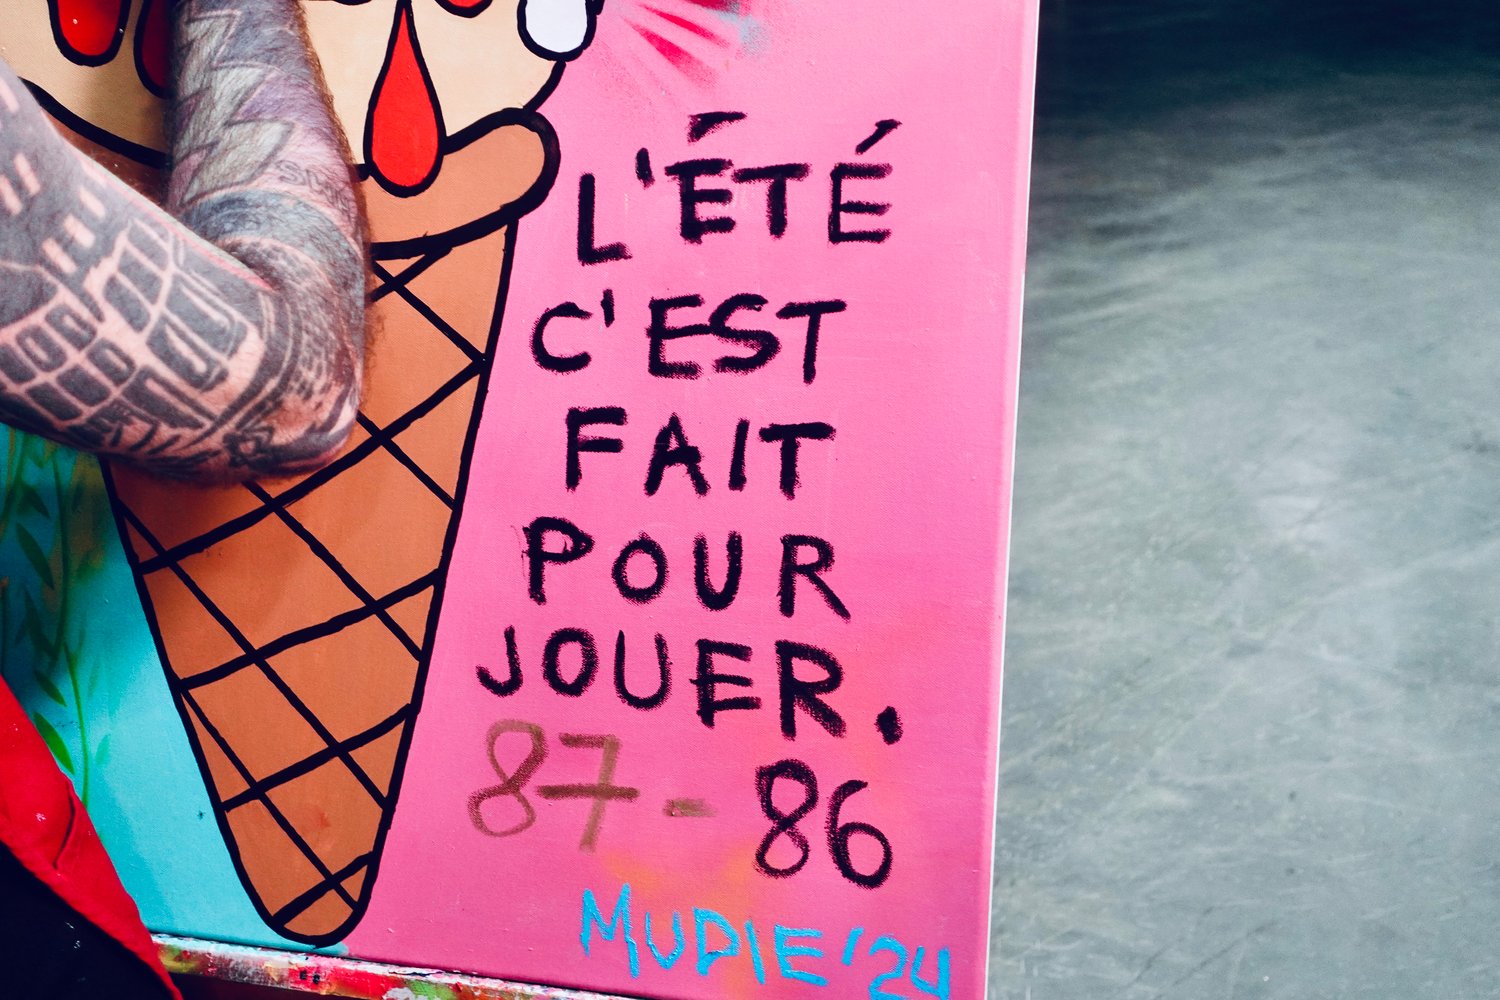 L'ÉTÉ
C'EST
FAIT
POUR
JOUER.
87-86
MUDIE '24